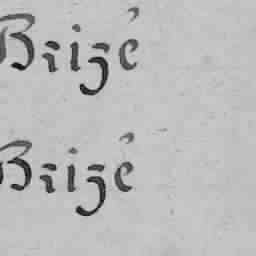 Brizé
Brizé